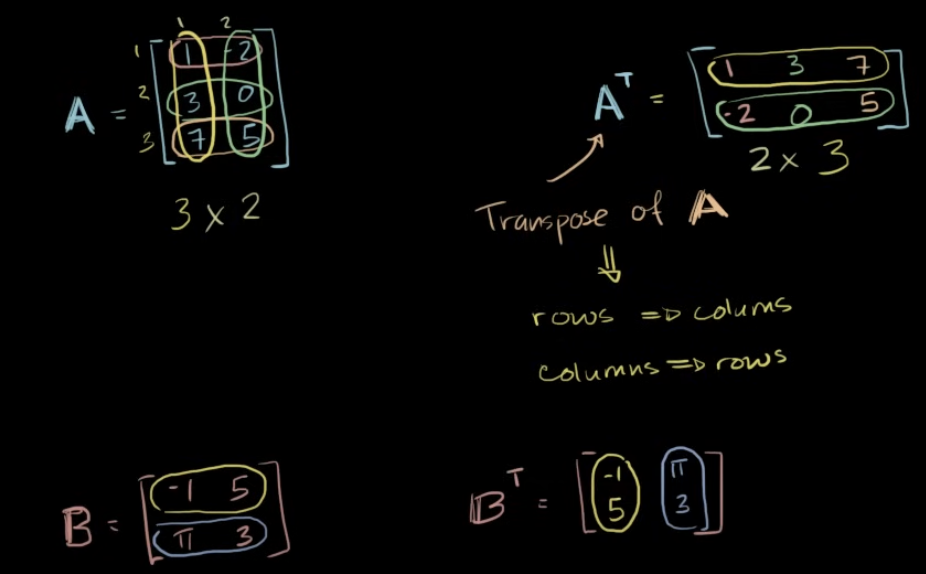 1 2
A = [ 1 -2
3 0
7 5 ]
1
2
3
3 x 2
Aᵀ = [ 1 3 7
-2 0 5 ]
2 x 3
Transpose of A
⇓
rows => colums
columns => rows
B = [ -1 5
π 3 ]
Bᵀ = [ -1 π
5 3 ]